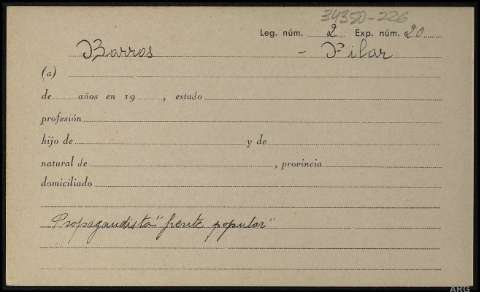 34350-226
Leg. núm. 2 Exp. núm. 20
Barros - Pilar
(a)
de años en 19 , estado
profesión
hijo de y de
natural de , provincia
domiciliado
Propagandista "frente popular"
ARG